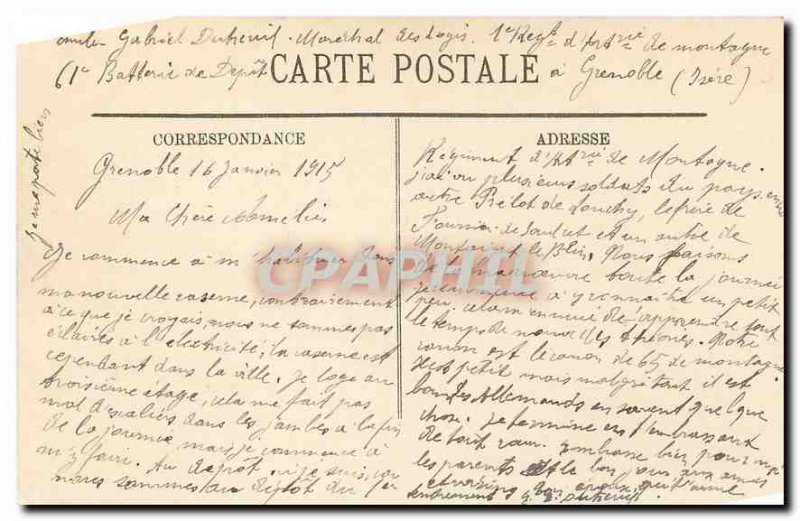 Gabriel Dutheuil. Maréchal des logis. 1e Regt d'Artrie de montagne
61e Batterie de Depôt à Grenoble (Isère)
CARTE POSTALE
CORRESPONDANCE
Grenoble 16 Janvier 1915
Ma Chère Amelie
Je commence à m'habituer dans
ma nouvelle caserne, contrairement
à ce que je croyais, nous ne sommes pas
éclairés à l'electricité, la caserne est
cependant dans la ville. Je loge au
troisième étage, cela me fait pas
mal d'escaliers dans les jambes à la fin
de la journée mais je commence à
m'y faire. Au dépôt où je suis, nous
sommes au dépôt du 1er
ADRESSE
Régiment d'Artrie de Montagne.
J'ai vu plusieurs soldats du pays, entre
autre Prélot de le frère de
Fournier de et un autre de
le Blin. Nous faisons
de la manœuvre toute la journée
je commence à y connaitre un petit
peu, cela m'ennuie de rapprendre tout
le temps de nouvelles théories. Notre
canon est le canon de 65 de montagne
il est petit mais malgré tout il est
bon, les Allemands en savent quelque
chose. Je termine en t'embrassant
de tout cœur. Embrasse bien pour moi
les parents et le bonjour aux amis
et voisins. Ton époux qui t'aime
tendrement G. Dutheuil
CPAPHIL